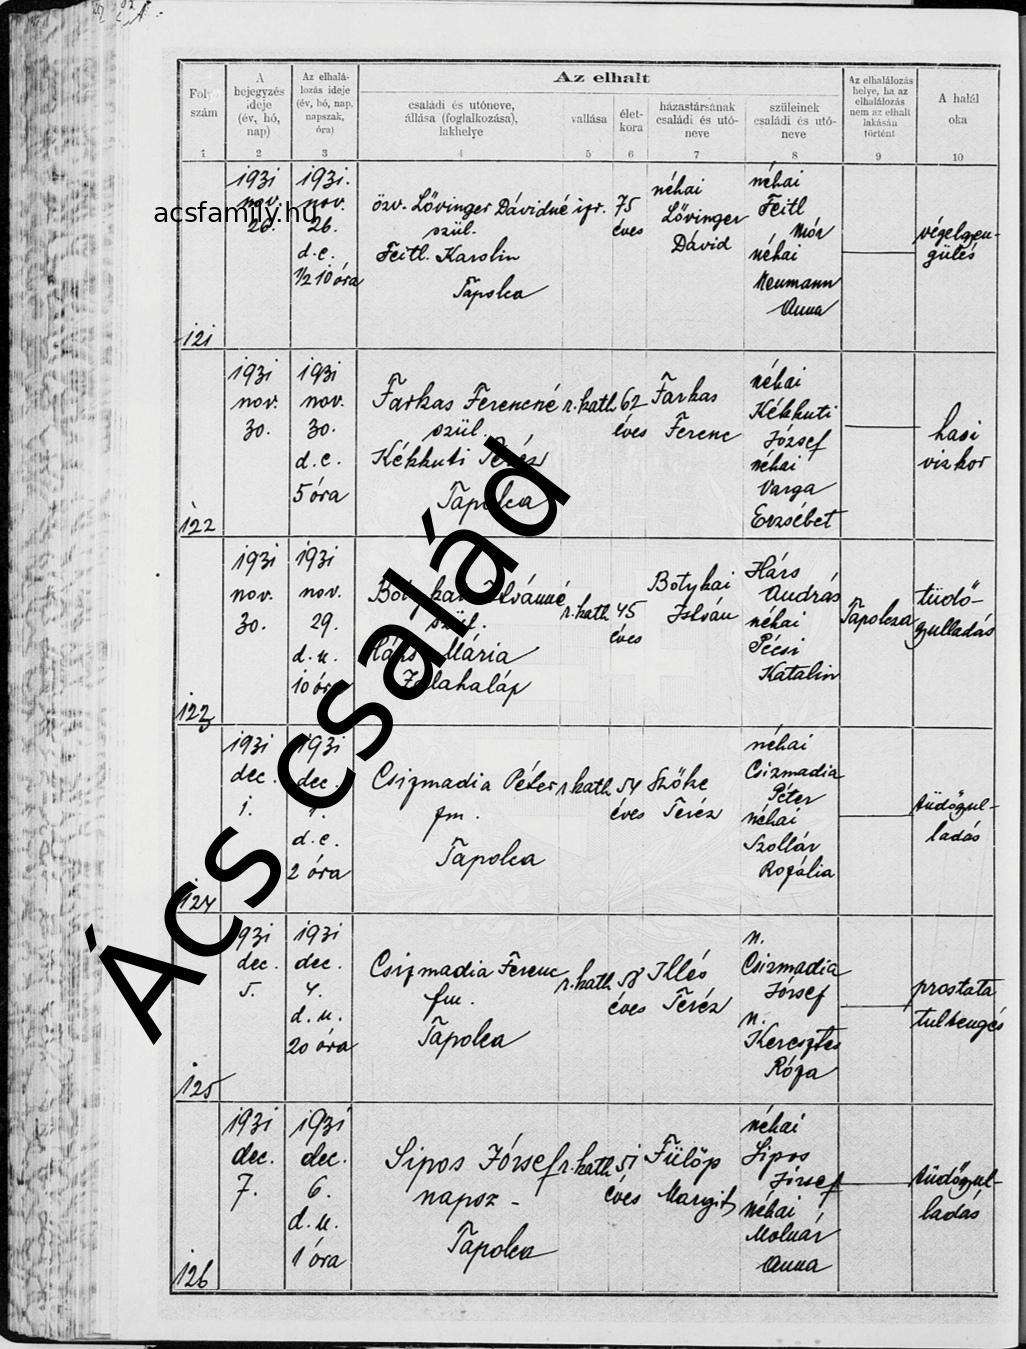 Az elhalt
Foly. szám
A bejegyzés ideje (év, hó, nap)
Az elhalálozás ideje (év, hó, nap, napszak, óra)
családi és utóneve, állása (foglalkozása), lakhelye
vallása
életkora
házastársának családi és utóneve
szüleinek családi és utóneve
Az elhalálozás helye, ha az elhalálozás nem az elhalt lakásán történt
A halál oka
1 2 3 4 5 6 7 8 9 10
acsfamily.hu
Ács család
121
1931 nov. 26.
1931. nov. 26. d.e. ½ 10 óra
özv. Lővinger Dávidné
szül.
Feitl Karolin
Tapolca
izr.
75 éves
néhai Lővinger Dávid
néhai Feitl Mór
néhai Neumann Anna
végelgyengülés
122
1931 nov. 30.
1931 nov. 30. d.e. 5 óra
Farkas Ferencné
szül.
Kékkuti Teréz
Tapolca
r. kath.
62 éves
Farkas Ferenc
néhai Kékkuti József
néhai Varga Erzsébet
hasi vizkor
123
1931 nov. 30.
1931 nov. 29. d.u. 10 óra
Botykai Istvánné
szül.
Hárs Mária
Zalahaláp
r. kath.
45 éves
Botykai István
Hárs András
néhai Pécsi Katalin
Tapolcza
tüdőgyulladás
124
1931 dec. 1.
1931 dec. 1. d.e. 2 óra
Csizmadia Péter
fm.
Tapolca
r. kath.
54 éves
Szőke Teréz
néhai Csizmadia Péter
néhai Szollár Rozália
tüdőgyulladás
125
1931 dec. 5.
1931 dec. 4. d.u. 20 óra
Csizmadia Ferenc
fm.
Tapolca
r. kath.
58 éves
Illés Teréz
n. Csizmadia József
n. Keresztes Róza
prostata tultengés
126
1931 dec. 7.
1931 dec. 6. d.u. 1 óra
Sipos József
napsz.
Tapolca
r. kath.
51 éves
Fülöp Margit
néhai Sipos József
néhai Molnár Anna
tüdőgyulladás